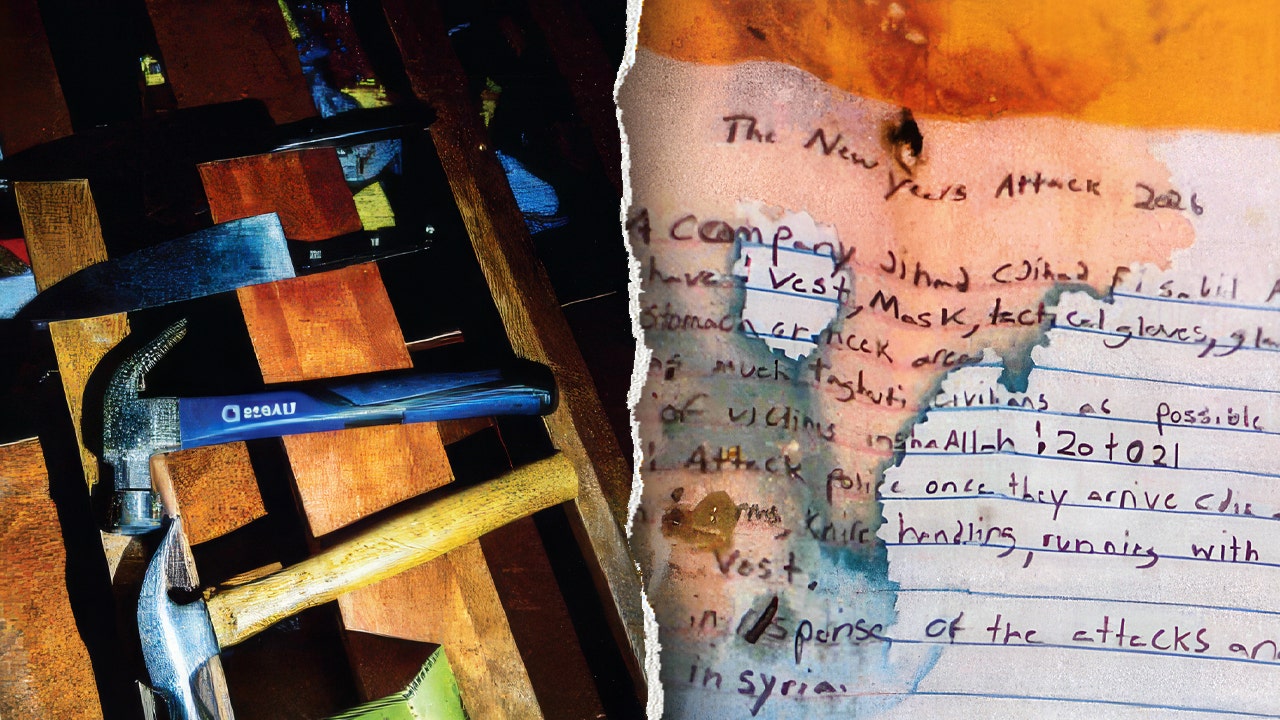 The New Years Attack 2026
A Company Jihad (Jihad fi sabil
have: 1 Vest, Mask, tactical gloves,
stomach or neck area
much taghuti civilians as possible
of victims inshaAllah ! 20 to 21
Attack police once they arrive
, Knife handling, running with
Vest.
in response of the attacks
in syria.